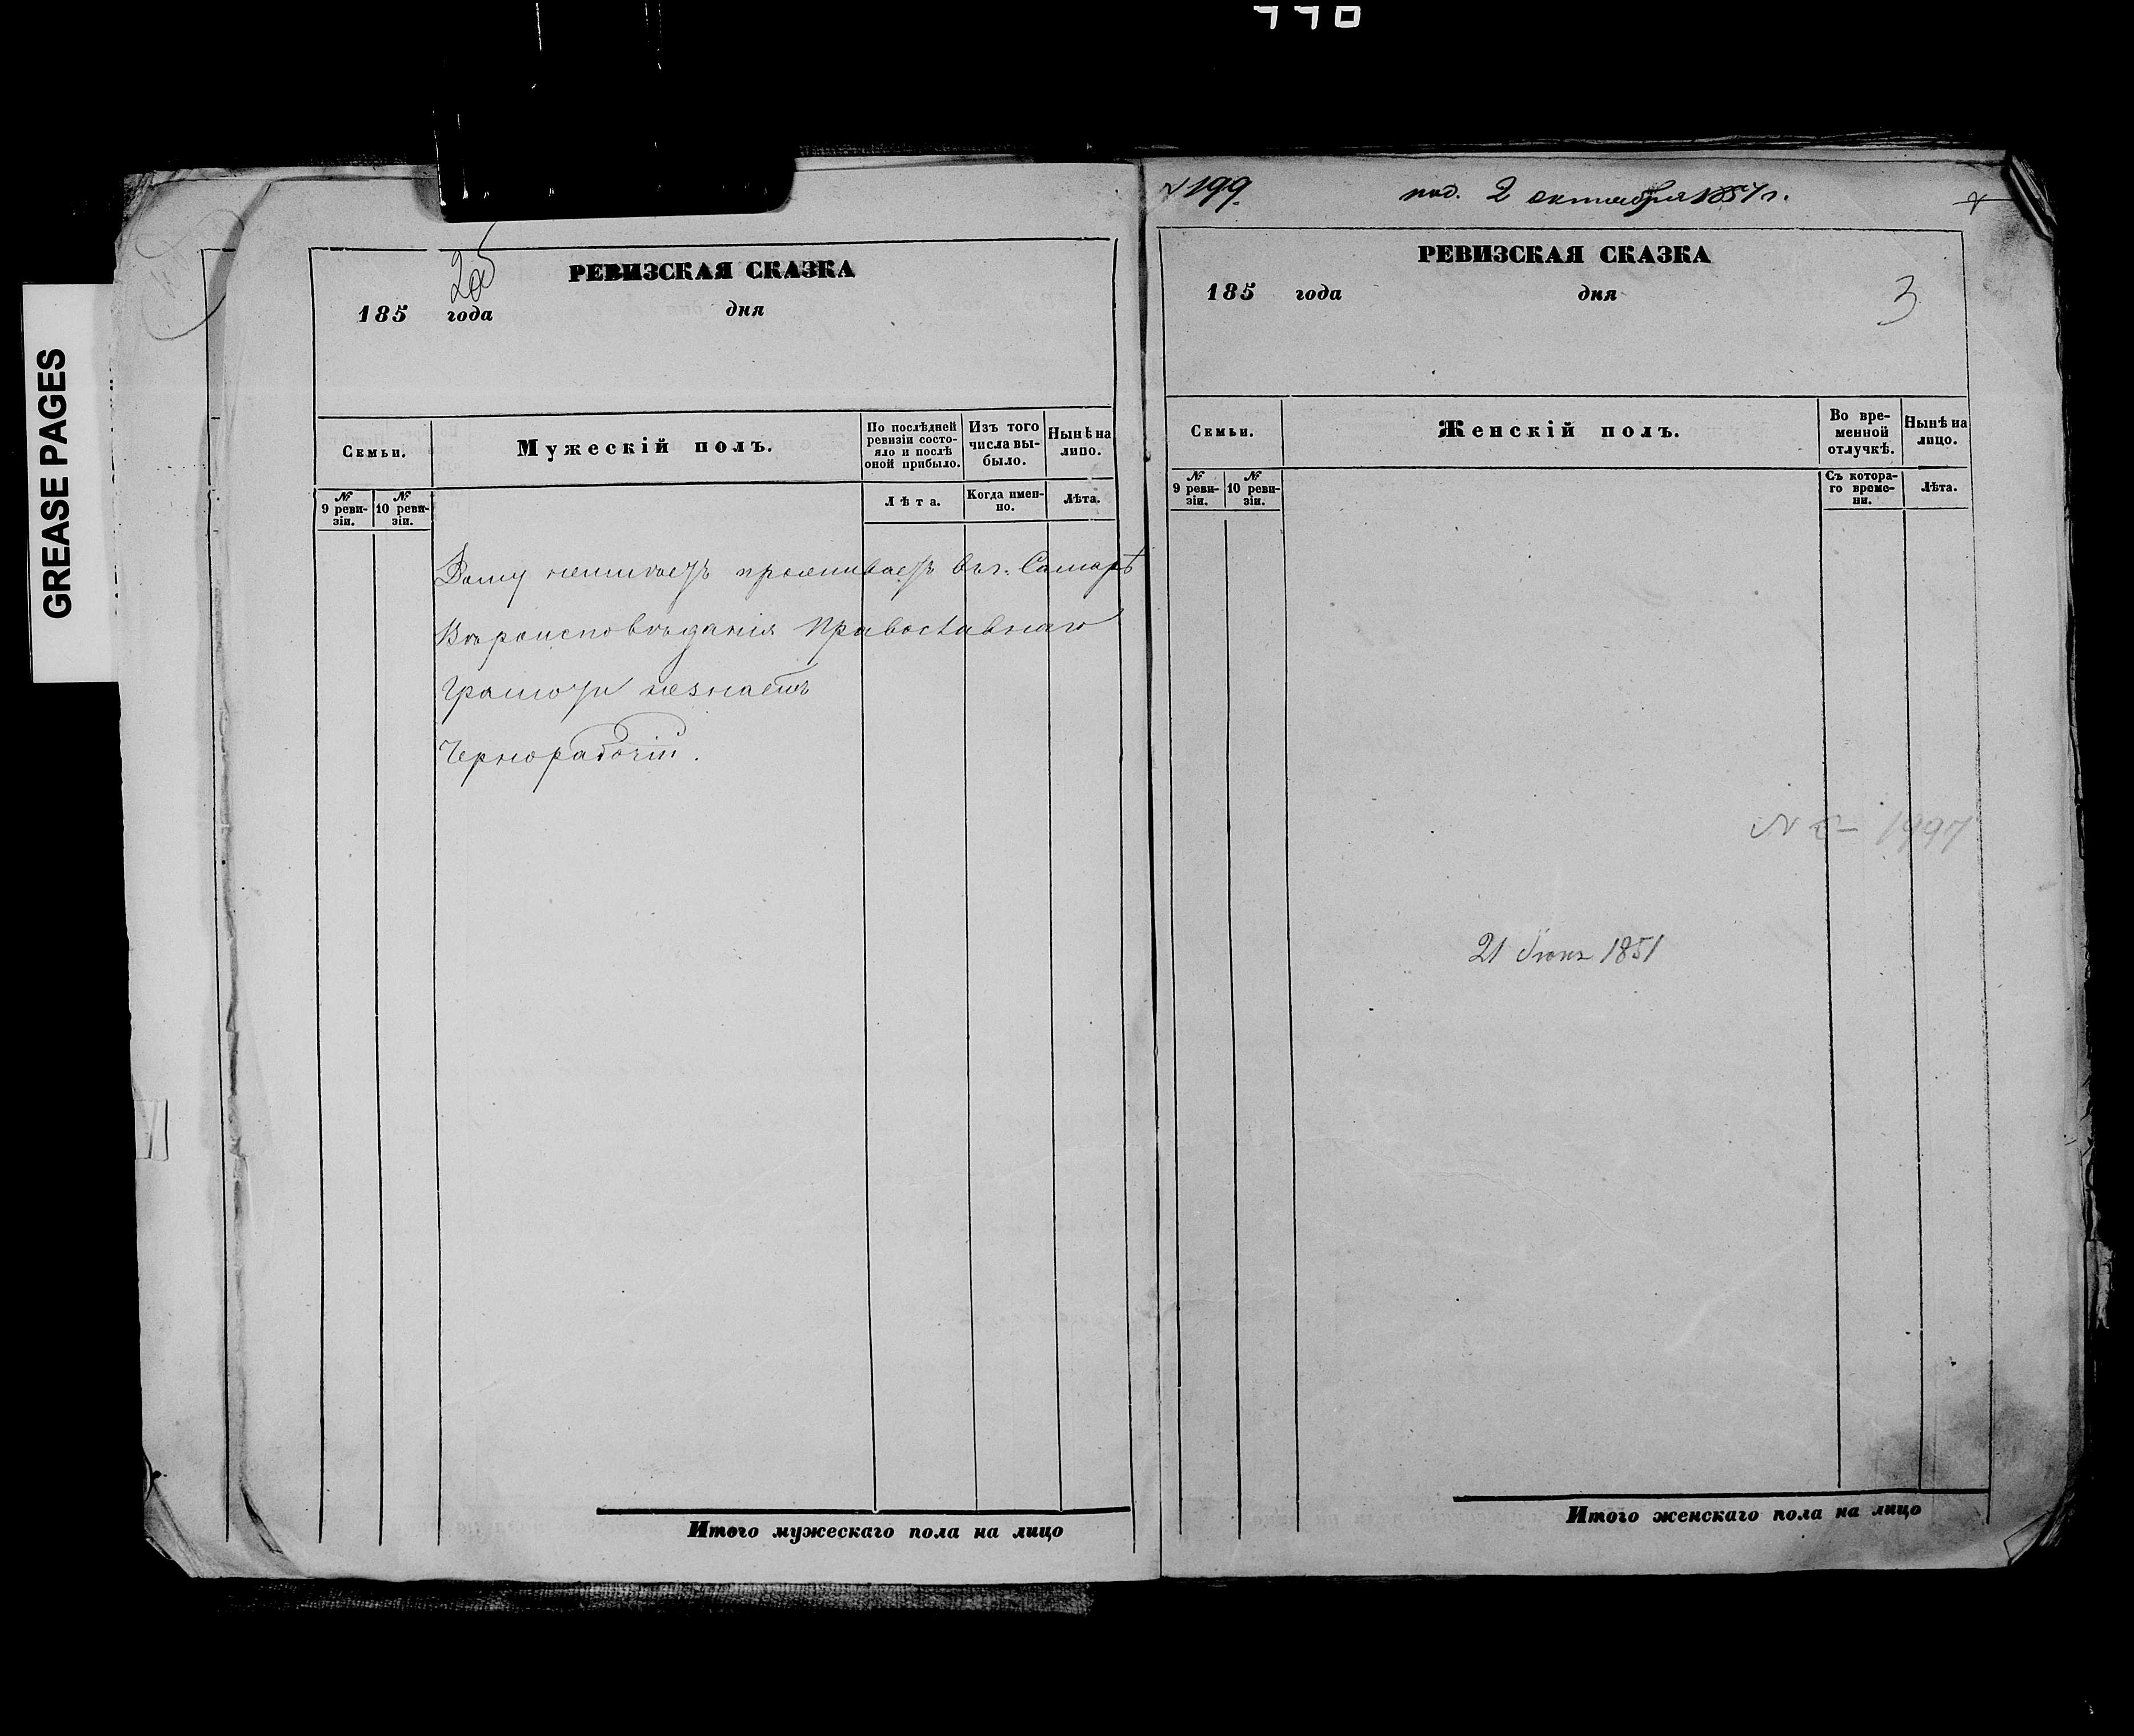 GREASE PAGES
РЕВИЗСКАЯ СКАЗКА
185 года дня
Семьи.
Мужескій полъ.
По послѣдней ревизіи состо-
яло и послѣ оной прибыло.
Изъ того числа вы-
было.
Нынѣ на лицо.
№ 9 реви-
зіи.
№ 10 реви-
зіи.
Лѣта.
Когда имен-
но.
Лѣта.
Дому неимѣетъ проживаетъ въ г. Самарѣ
Вѣроисповѣданія Православнаго
Грамоти незнаетъ
Чернорабочій.
Итого мужескаго пола на лицо
№ 199. под. 2 октября г.
РЕВИЗСКАЯ СКАЗКА
185 года дня
3
Семьи.
Женскій полъ.
Во вре-
менной
отлучкѣ.
Нынѣ на
лицо.
№ 9 реви-
зіи.
№ 10 реви-
зіи.
Съ котора-
го време-
ни.
Лѣта.
1997
21 Іюня 1851
Итого женскаго пола на лицо